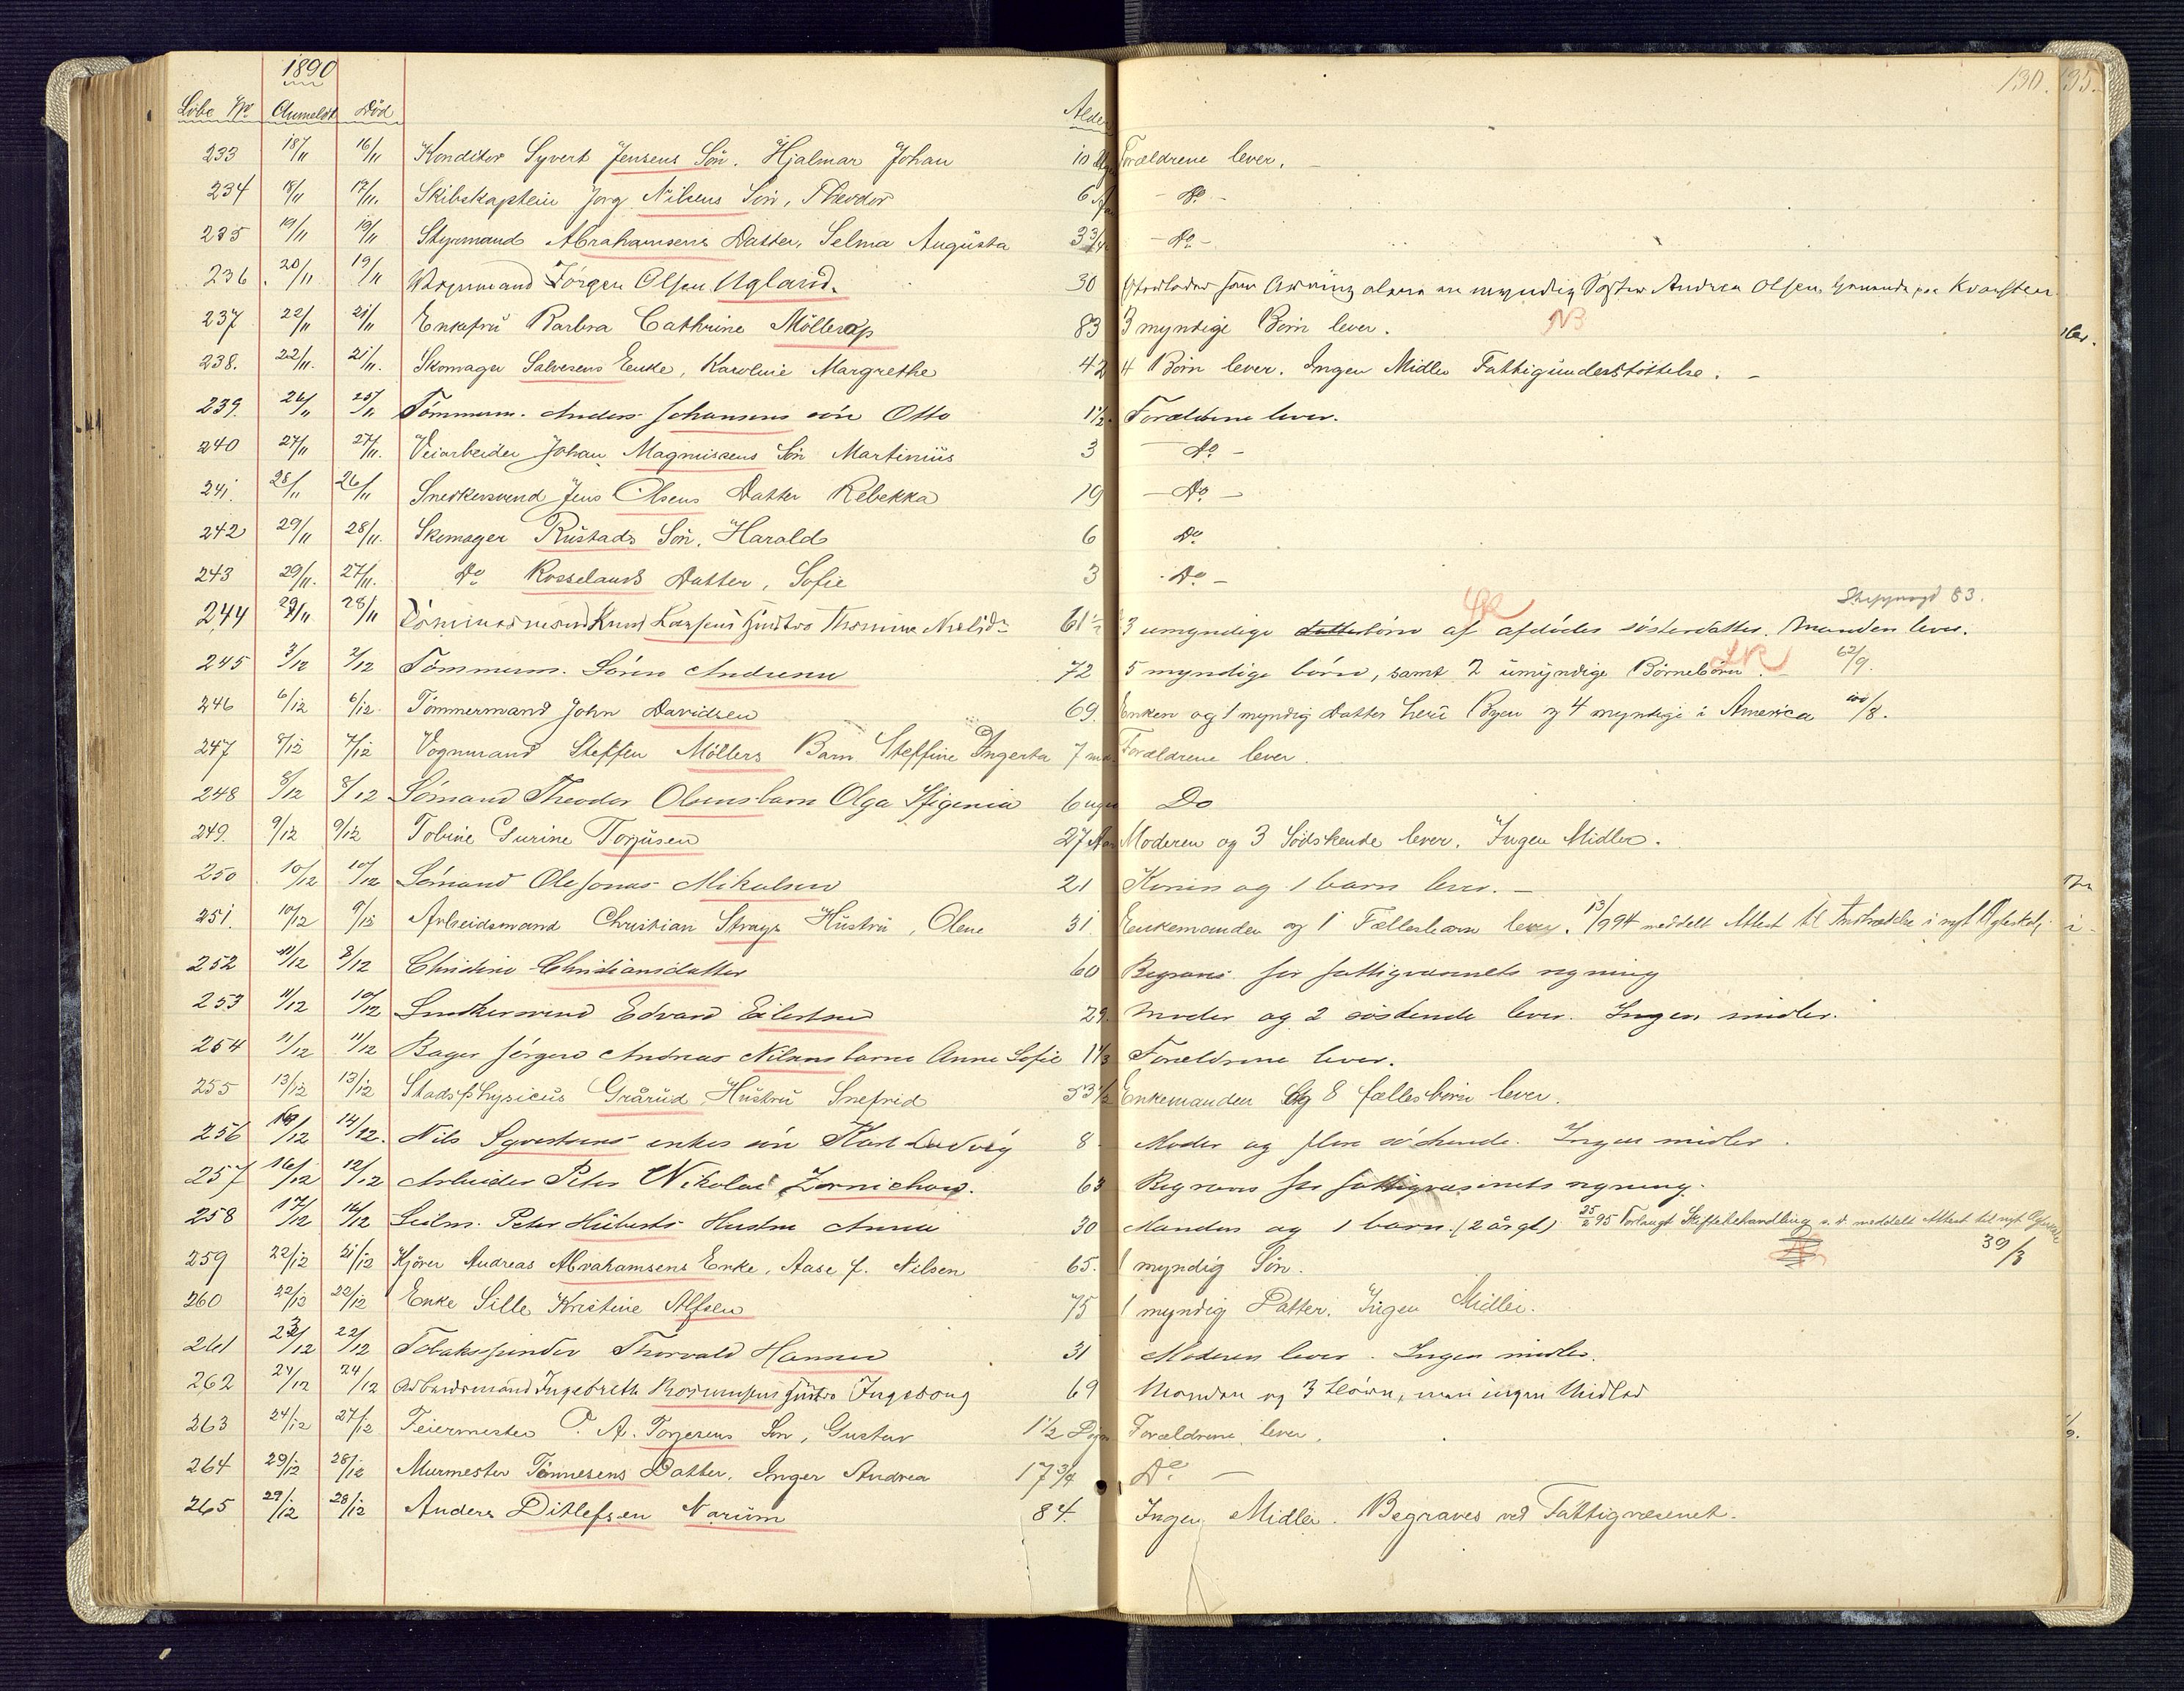 1890
130. 135.
Löbe No Anmeldt Död Alder
233 18/11 16/11 Konditor Syvert Jensens Sön. Hjalmar Johan 10 Forældrene lever.
234 18/11 17/11. Skibskaptein Jörg Nilsens Sön, Theodor 6 - Do -
235 19/11 19/11 Styrmand Abrahamsens Datter, Selma Augusta 3 3/4 - Do -
236. 20/11 19/11 Vognmand Jörgen Olsen Ugland. 30 som Arving alene en myndig Söster Andrea Olsen
237 22/11 21/11 Enkefru Barbra Cathrine Möllerop 83 3 myndige Börn lever. NB
238. 22/11. 21/11. Skomager Salvesens Enke, Karoline Margrethe 42 4 Börn lever. Ingen Midler Fattigunderstöttelse. -
239. 26/11 25/11 Tömmerm. Anders Johansens sön Otto 1 1/2. Forældrene lever.
240 27/11 27/11. Veiarbeider Johan Magnussens Sön Martinius 3 - Do -
241. 28/11 26/11 Snedkersvend Jens Olsens Datter Rebekka 19 - Do -
242 29/11 28/11. Skomager Rustads Sön, Harald 6 Do
243 29/11. 27/11. Do Rosselands Datter, Sofie 3 - Do -
244 29/11 28/11 Tömmermand Knud Larsens Hustro Thomine Nielsdr 61 1/2 3 umyndige börn af afdödes sösterdatter. Manden lever. 83.
245 3/12 2/12 Tömmerm. Sören Andersen 72 5 myndige börn, samt 2 umyndige Börnebörn. 62/9.
246 6/12 6/12 Tömmermand John Davidsen 69. Enken og 1 myndig Datter her i Byen og 4 myndige i America 100/8.
247 8/12 7/12 Vognmand Steffen Möllers Barn Steffine Ingerta 7 md. Forældrene lever.
248 8/12 8/12 Sömand Theodor Olsens barn Olga Ifigenia 6 uger Do
249. 9/12 9/12 Tobine Gurine Torjusen 27 Aar Moderen og 3 Södskende lever. Ingen Midler.
250 10/12 10/12 Sömand Ole Jonas Mikalsen 21 Konen og 1 barn lever. -
251. 10/12 9/12 Arbeidsmand Christian Strays Hustru, Olene 31. Enkemanden og 1 Fællesbarn lever. 13/9 94 meddelt Attest til Indtrædelse i nyt Ægteskab
252 11/12 8/12 Christine Christiansdatter 60 Begraves for fattigvæsenets regning
253 11/12 10/12 Snedkersvend Edvard Eilertsen 29. Moder og 2 sösdende lever. Ingen midler.
254 11/12 11/12 Bager Jörgen Andreas Nilsens barn Anne Sofie 1 1/3 Forældrene lever.
255 13/12 13/12 Stadsphysicus Graarud Hustru Snefrid 53 1/2 Enkemanden og 8 fællesbörn lever.
256 16/12 14/12. Nils Syvertsens enkes sön Karl Ludvig 8 - Moder og flere söskende. Ingen midler.
257 16/12 12/12 Arbeider Peter Nikolai Zernichow. 63 Begraves for fattigvæsenets regning.
258 17/12 16/12 Seilm. Peter Huberts Hustru Anna 30 Manden og 1 barn. (2 år gl) 25/2 95 Forlangt Skiftebehandling meddelt Attest til nyt
259 22/12 21/12 Kjörer Andreas Abrahamsens Enke, Aase f. Nilsen 65. 1 myndig Sön. 39/3
260 22/12 22/12 Enke Sille Kristine Alfsen 75 1 myndig Datter. Ingen Midler.
261 23/12 22/12 Tobaksspinder Thorvald Hansen 31 Moderen lever. Ingen midler.
262 24/12 24/12 Arbeidsmand Ingebreth Hustro Ingeborg 69 Manden og 3 Börn, men ingen Midler
263 24/12 27/12 Feiermester P. A. Torjesens Sön, Gustav 1 1/2 Dögn Forældrene lever.
264 29/12 28/12 Murmester Tönnesens Datter, Inger Andrea 17 3/4 Do -
265 29/12 28/12 Anders Ditlefsen Narum 84. Ingen Midler. Begraves ved Fattigvæsenet.